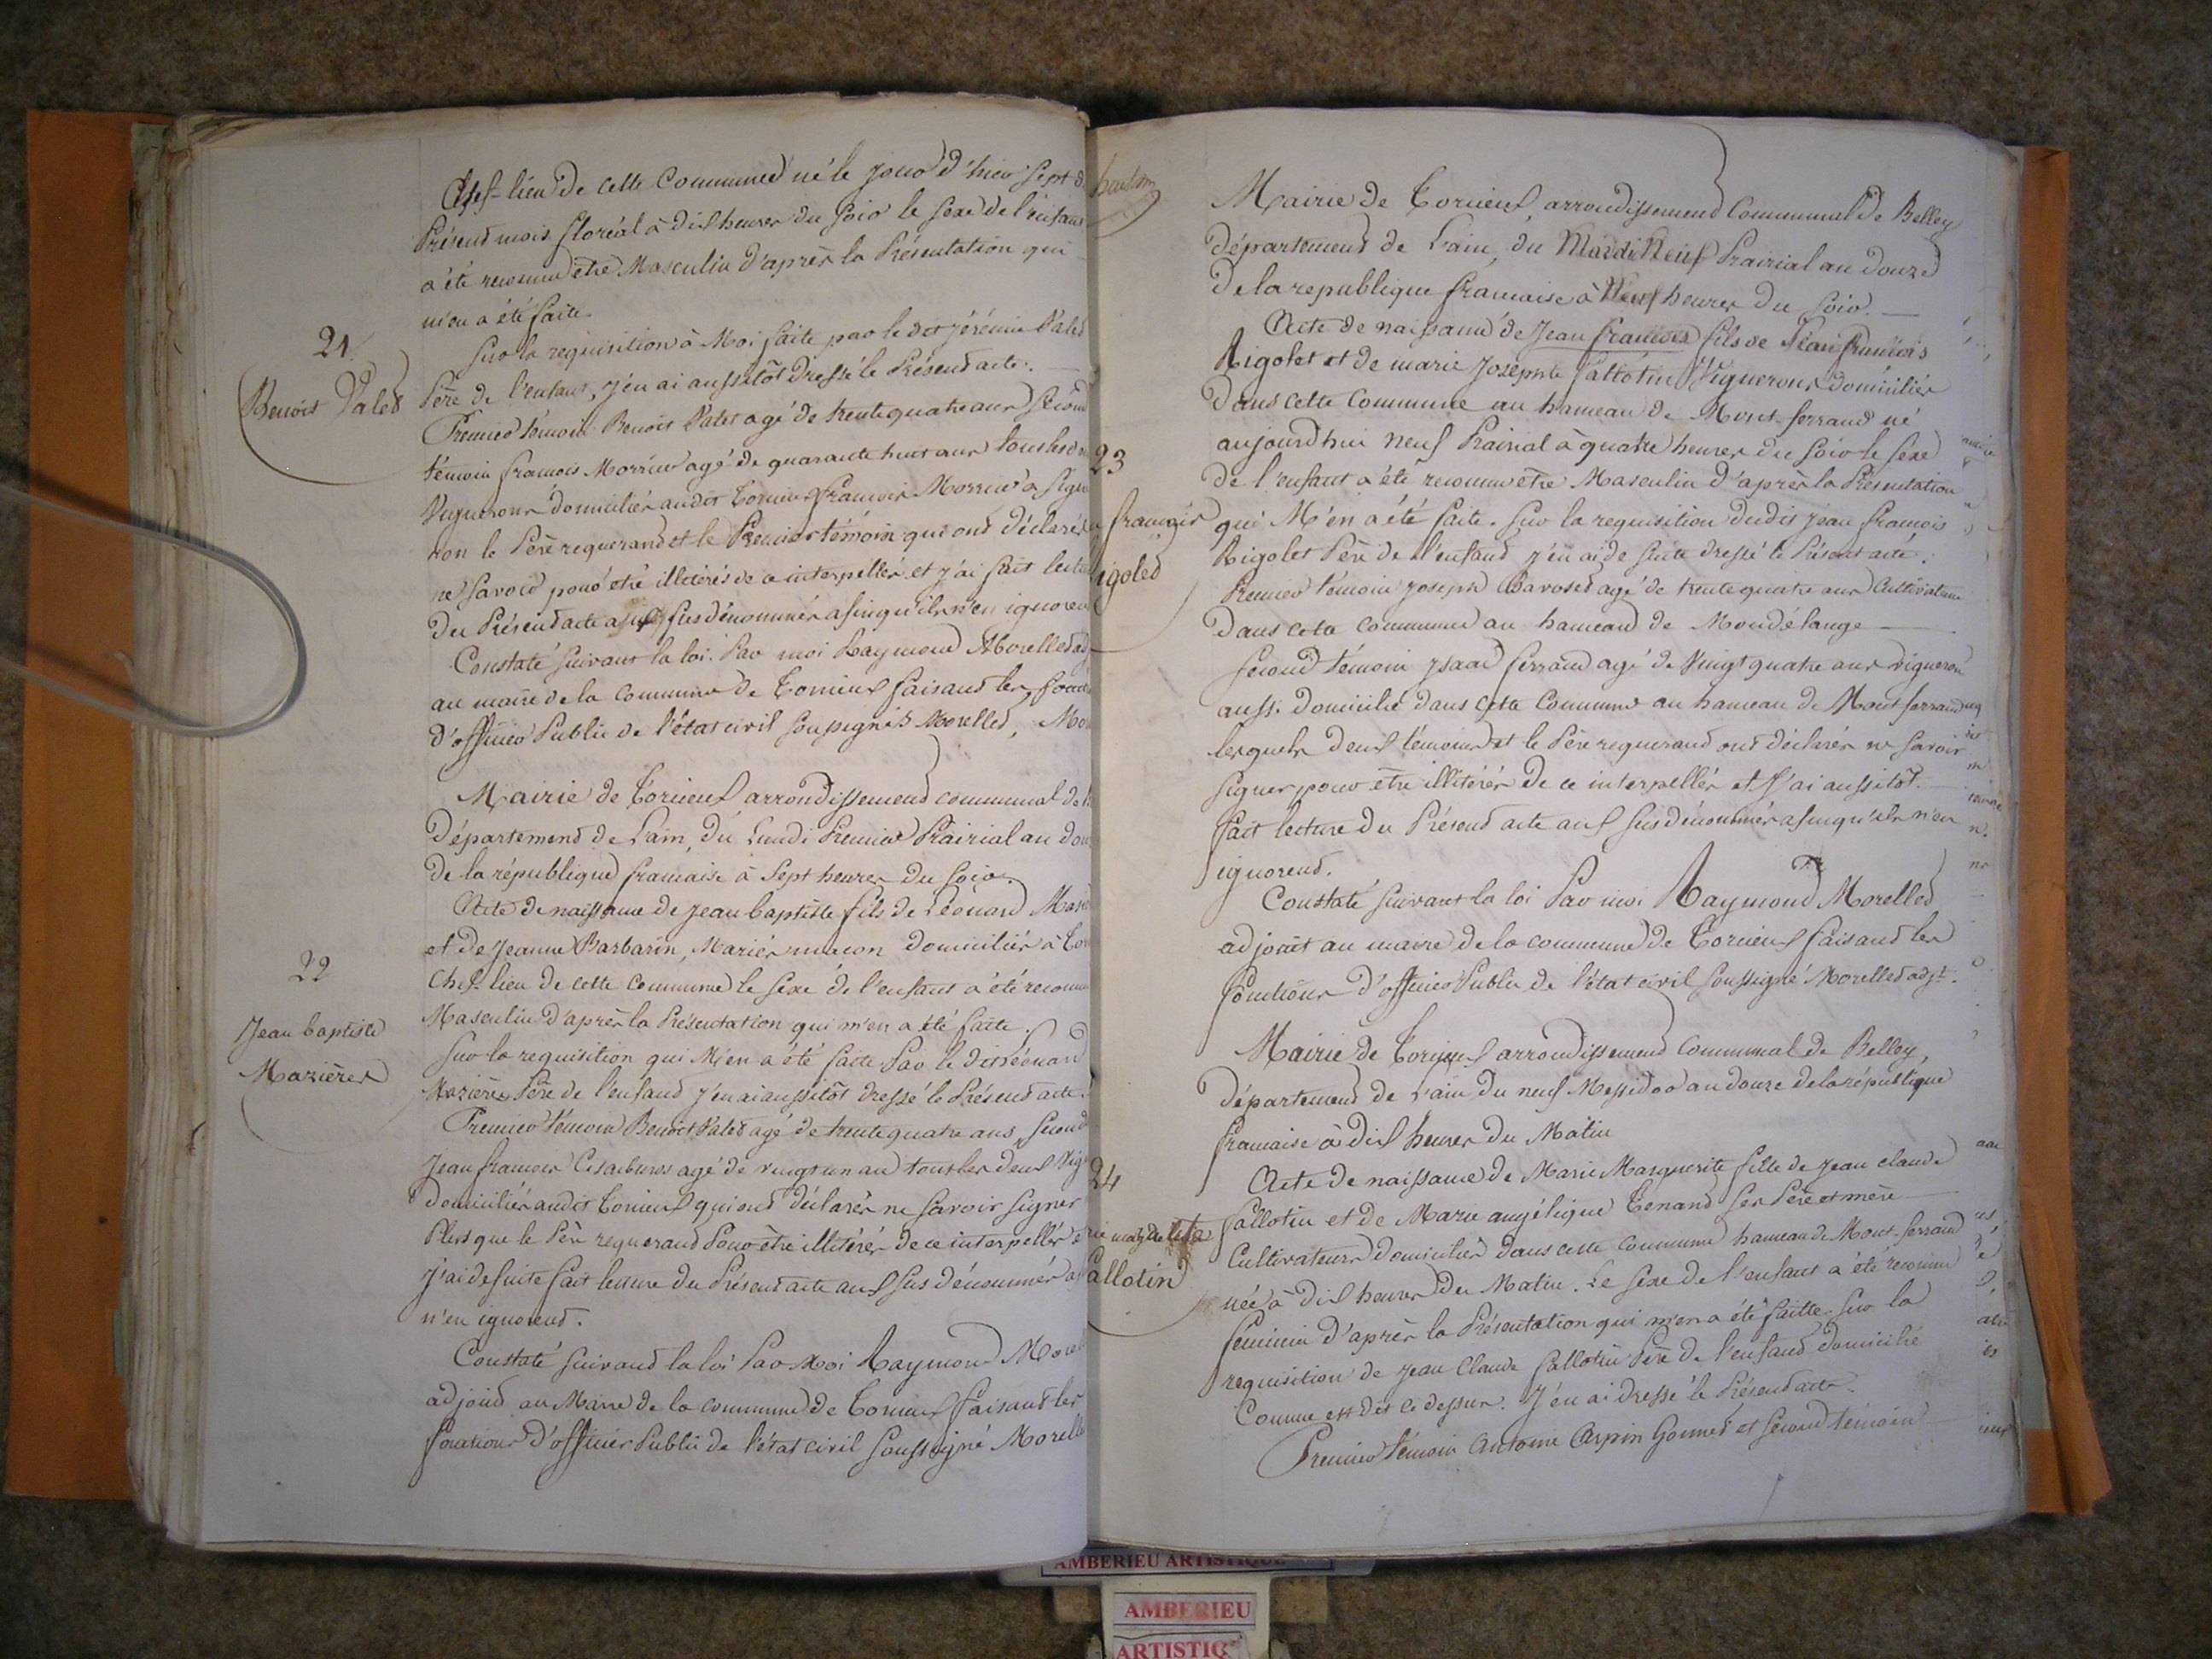 Chef-lieu de cette Commune né le jour d'hier sept d
Présent mois floréal à dix heures du soir le sexe de l'enfant
a été reconnu être Masculin d'après la Présentation qui
m'en a été faite.
21.
Benoit Palet
Sur la requisition à Moi faite par le dit jérémie Palet
Père de l'enfant, j'en ai aussitôt dressé le Présent acte.
Premier témoin Benoit Palet agé de trente quatre ans second
témoin francois Morrier agé de quarante huit ans tous les
Vignerons domiciliés audit Torcieux francois Morrier a signé
non le Père requerant et le Premier témoin qui ont déclarés
ne savoir pour être illitérés de ce interpellés et j'ai fait lectu
du Présent acte aux sus dénommés afin qu'ils n'en ignorent
Constaté suivant la loi. Par moi Raymond Morellet adj
au maire de la Commune de Torcieux faisant les fonct
d'officier Public de l'état civil soussignés Morellet, Mo
Mairie de Torcieux arrondissement communal de
Département de L'ain, du Lundi Premier Prairial an dou
de la république francaise à Sept heures du soir.
22
Jean baptiste
Mazières
Acte de naissance de jean baptiste fils de Léonard Mazi
et de jeanne Barbarin, Mariés macon domiciliés à Tor
Chef-lieu de cette commune le sexe de l'enfant a été reconnu
Masculin d'après la Présentation qui m'en a été faite.
Sur la requisition qui M'en a été faite Par le dit Léonard
Mazières Père de l'enfant j'en ai aussitôt dressé le Présent acte.
Premier témoin Benoit Palet agé de trente quatre ans, second
Jean francois agé de vingt un an tous les deux Vig
domiciliés audit Torcieux qui ont déclarés ne savoir signer
Plus que le Père requerant Pour être illitérés de ce interpellés e
j'ai de suite fait lecture du Présent acte aux sus dénommés af
n'en ignorent.
Constaté suivant la loi Par Moi Raymond Morel
adjoint au Maire de la commune de Torcieux faisant les
fonctions d'officier Public de l'état civil soussigné Morelle
Mairie de Torcieux, arrondissement Communal de Belley
département de L'ain, du Mardi Neuf Prairial an douze
de la republique francaise à Neuf heures du soir.
Acte de naissance de Jean francois fils de Jean francois
Rigolet et de marie Josephte fallotin Vignerons domiciliés
Dans cette Commune au hameau de Mont-ferrand né
aujourd'hui Neuf Prairial à quatre heures du soir le sexe
23
n francois
igolet
de l'enfant a été reconnu être Masculin d'après la Présentation
qui M'en a été faite. Sur la requisition dudit jean francois
Rigolet Père de l'enfant j'en ai de suite dressé le Présent acte.
Premier témoin joseph Savoset agé de trente quatre ans Cultivateur
Dans cette commune au hameau de Mondélange
Second témoin ysaac ferrand agé de Vingt quatre ans vigneron
aussi domicilié dans cette Commune au hameau de Mont ferrand
lesquels deux témoins et le Père requerant ont déclarés ne savoir
signer pour être illitérés de ce interpellés et j'ai aussitôt
fait lecture du Présent acte aux sus dénommés afin qu'ils n'en
ignorent.
Constaté suivant la loi Par moi Raymond Morellet
adjoint au maire de la commune de Torcieux faisant les
fonctions d'officier Public de l'état civil soussigné Morellet adjt.
Mairie de Torcieux arrondissement Communal de Belley,
département de L'ain du neuf Messidor an douze de la république
francaise à dix heures du Matin
24
rie marguerite
allotin
Acte de naissance de Marie Marguerite fille de Jean claude
fallotin et de Marie angélique Tenand ses Père et mère
Cultivateurs domiciliés dans cette Commune hameau de Mont-ferrand
née à dix heures du Matin. Le sexe de l'enfant a été reconnu
feminin d'après la Présentation qui m'en a été faitte. Sur la
requisition de jean Claude fallotin Père de l'enfant domicilié
Comme est dit ci dessus. J'en ai dressé le Présent acte.
Premier témoin Antoine Carpin Gonnet et second témoin
AMBERIEU ARTISTIQUE
AMBERIEU
ARTISTIQ